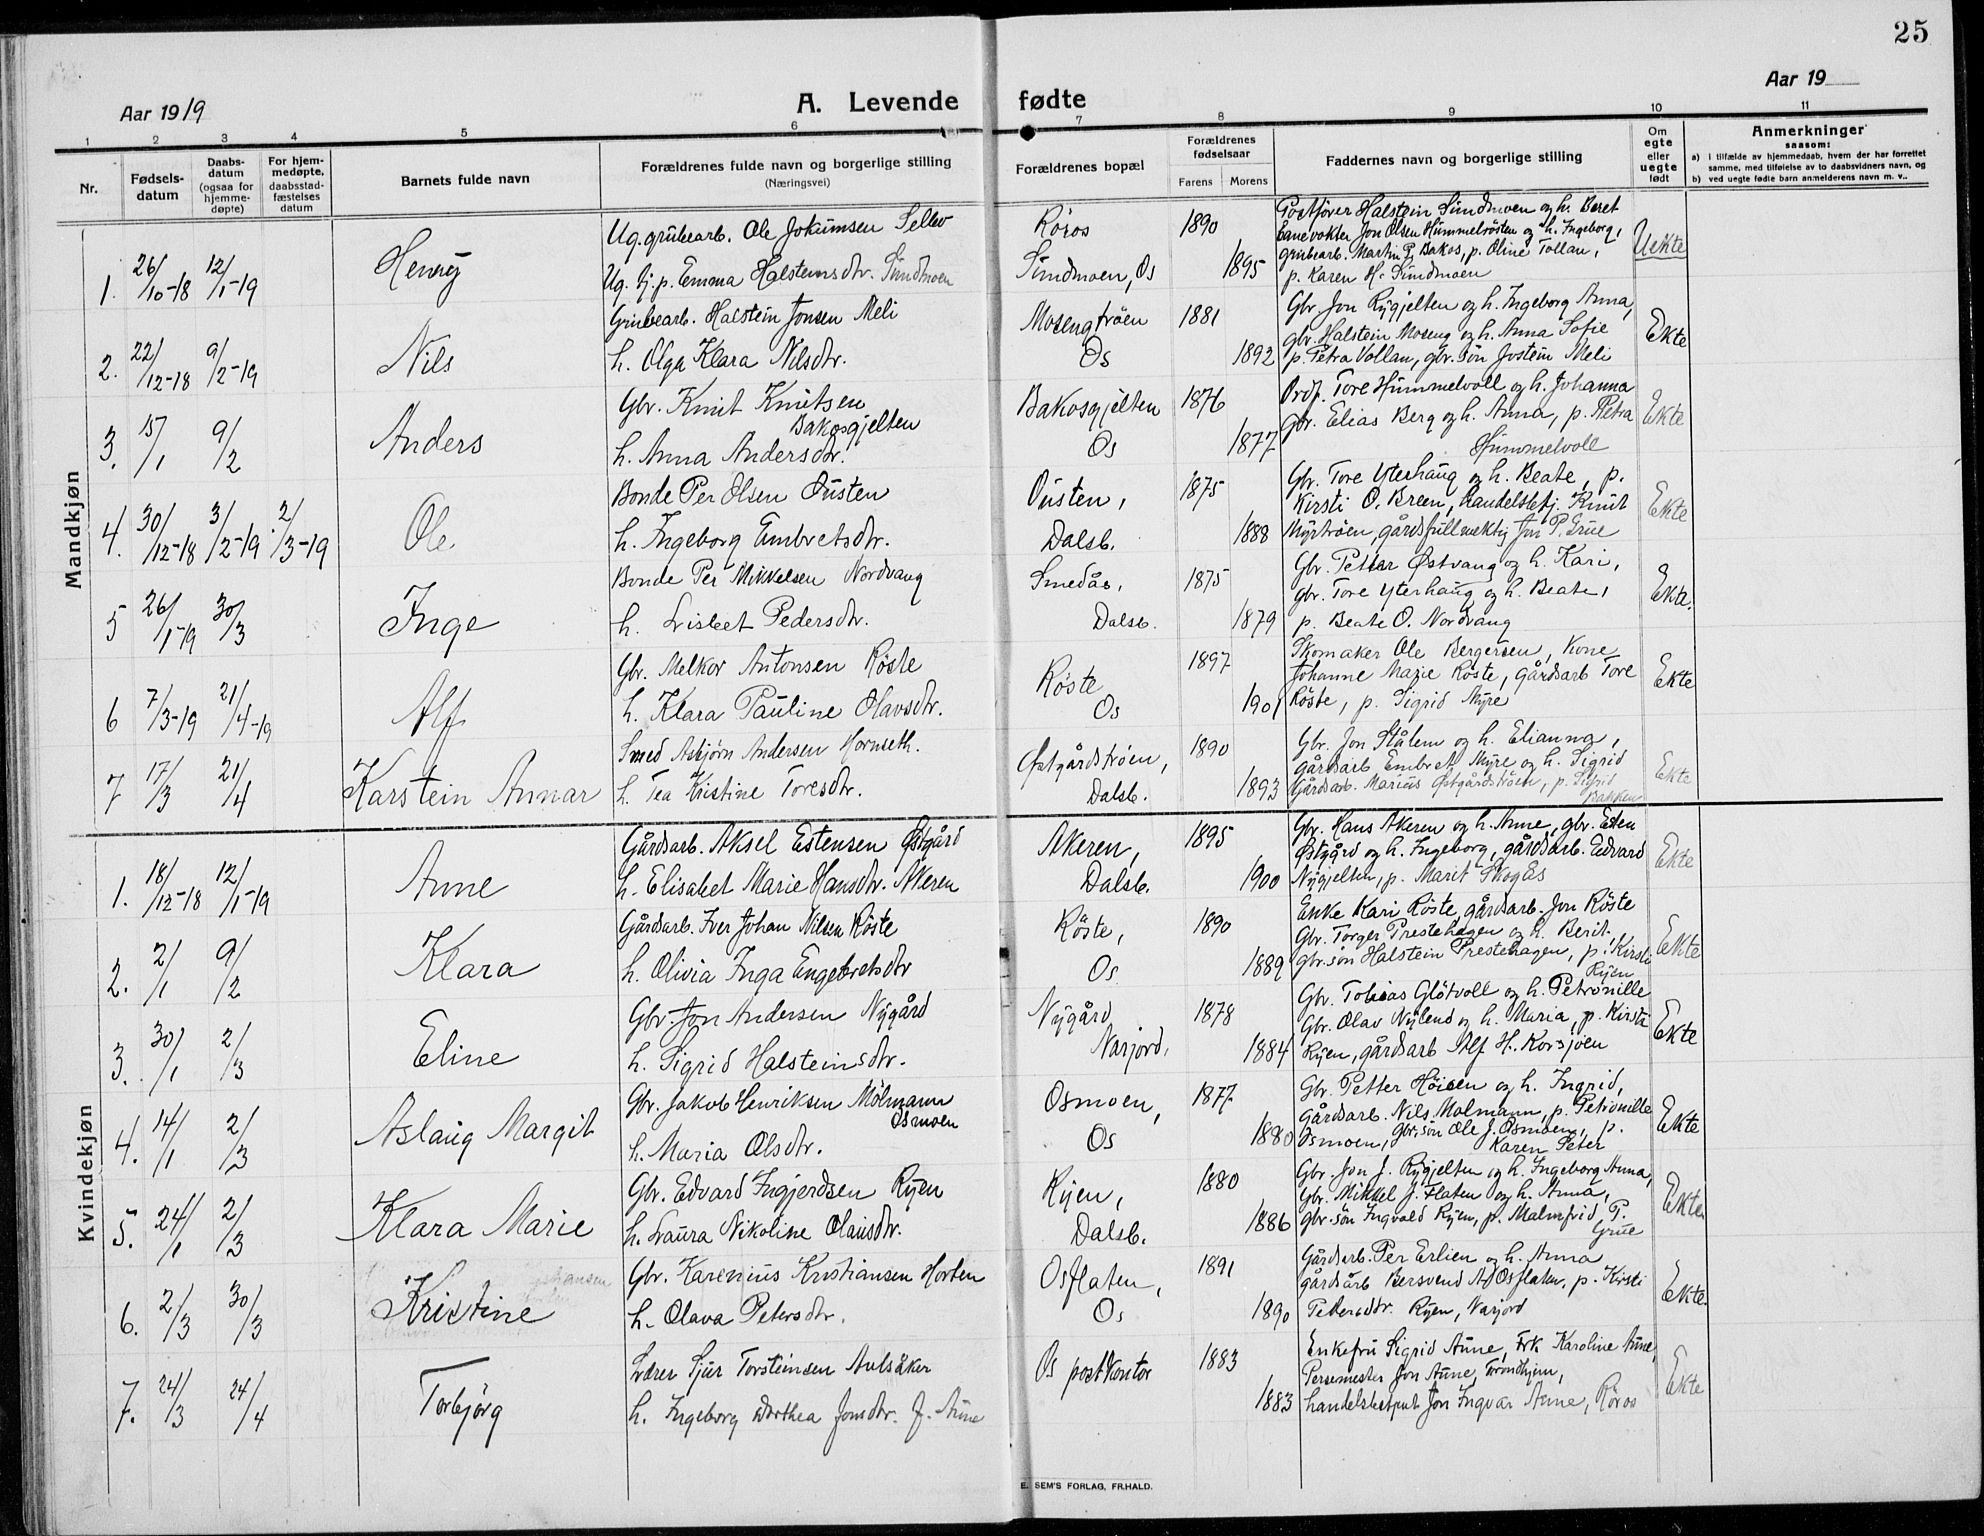 25
Aar 1919
A. Levende fødte
Aar 19
1 2 3 4 5 6 7 8 9 10 11
Nr.
Fødsels-datum
Daabs-datum (ogsaa for hjemme-døpte)
For hjem-medøpte, daabsstad-fæstelses datum
Barnets fulde navn
Forældrenes fulde navn og borgerlige stilling
(Næringsvei)
Forældrenes bopæl
Forældrenes fødselsaar
Farens Morens
Faddernes navn og borgerlige stilling
Om egte eller uegte født
Anmerkninger
saasom:
a) i tilfælde av hjemmedaab, hvem der har forrettet samme, med tilføielse av to daabsvidners navn, og
b) ved uegte fødte barn anmelderens navn m. v..
Mandkjøn
1. 26/10-18 12/1-19 Henry
Ug. grubearb. Ole Jokumsen Sellev
Ug. tj. p. Emma Halsteinsdtr. Sundmoen
Röros
Sundmoen, Os
1890
1895
Postfører Halstein Sundmoen og h. Beret
Banevokter Jon Olsen Hummelrösten og h. Ingeborg,
grubearb. Martin P. Bakos, p. Oline Tollan,
p. Karen H. Sundmoen
Uekte
2. 22/12-18 9/2-19 Nils
Grubearb. Halstein Jonsen Meli
h. Olga Klara Nilsdtr.
Mosengtröen
Os
1881
1892
Gbr Jon Rygjelten og h. Ingeborg Anna,
gbr. Halstein Moseng og h. Anna Sofie
p. Petra Vollan, gbr. søn Jostein Meli
Ekte
3. 15/1 9/2 Anders
Gbr. Knut Knutsen
Bakosgjelten
h. Anna Andersdtr.
Bakosgjelten
Os
1876
1877
Ordf. Tore Hummelvoll og h. Johanna
Gbr. Elias Berg og h. Anna, p. Petra
Hummelvoll
Ekte
4. 30/12-18 3/2-19 2/3-19 Ole
Bonde Per Olsen Ousten
h. Ingeborg Embretsdtr.
Ousten,
Dalsb.
1875
1888
Gbr. Tore Yterhaug og h. Beate, p.
Kirsti O. Breen, handelsbetj. Knut
Myrtröen, gårdsfullmektig Jon P. Grue
Ekte
5 26/1-19 30/3 Inge
Bonde Per Mikkelsen Nordvang
h. Lisbet Pedersdtr.
Smedås,
Dalsb.
1875
1879
Gbr. Petter Østvang og h. Kari,
gbr. Tore Yterhaug og h. Beate,
p. Beate O. Nordvang
Ekte.
6 7/3-19 21/4-19 Alf
Gbr. Melkor Antonsen Röste
h. Klara Pauline Olavsdtr.
Röste
Os
1897
1901
Skomaker Ole Bergersen, Kone
Johanne Marie Röste, gårdsarb Tore
Röste, p. Sigrid Myre
Ekte
7 17/3 21/4 Karstein Annar
Smed Asbjörn Andersen Hornseth.
h. Tea Kristine Toresdtr.
Østgårdströen,
Dalsb.
1890
1893
Gbr. Jon Stålem og h. Elianna,
gårdsarb Embret Myre og h. Sigrid
Gårdsarb. Marius Østgårdströen, p. Sigrid
Bakken
Ekte
Kvindekjøn
1. 18/12-18 12/1-19 Anne
Gårdsarb. Aksel Estensen Østgård
h. Elisabet Marie Hansdtr. Akeren
Akeren,
Dalsb.
1895
1900
Gbr. Hans Akeren og h. Anne, gbr. Esten
Østgård og h. Ingeborg, gårdsarb. Edvard
Nygjelten, p. Marit Skogås
Ekte
2. 2/1 9/2 Klara
Gårdsarb. Iver Johan Nilsen Röste
h. Olivia Inga Engebretsdtr
Röste,
Os
1890
1889
Enke Kari Röste, gårdsarb. Jon Röste
Gbr. Torger Prestehagen og h. Berit,
gbr. søn Halstein Prestehagen, p. Kirsti
Ryen
Ekte
3. 30/1 2/3 Eline
Gbr. Jon Andersen Nygård
h. Sigrid Halsteinsdtr.
Nygård
Narjord,
1878
1884
Gbr. Tobias Glötvoll og h. Petronille
Gbr. Olav Nylend og h. Maria, p. Kirsta
Ryen, gårdsarb Alf H. Korsjöen
Ekte
4. 14/1 2/3 Aslaug Margit
Gbr. Jakob Henriksen Mölmann
Osmoen
h. Maria Olsdtr.
Osmoen,
Os
1877
1880
Gbr. Petter Höisen og h. Ingrid,
gårdsarb. Nils Molmann, p. Petronille
Osmoen, Gbr. søn Ole J. Osmoen, p.
Karen Peter
Ekte
5. 24/1 2/3 Klara Marie
Gbr. Edvard Ingjerdsen Ryen
h. Laura Nikoline Olausdtr.
Ryen,
Dalsb.
1880
1886
Gbr. Jon J. Rygjelten og h. Ingeborg Anna,
Gbr. Mikkel J. Flaten og h. Anna,
gbr. søn Ingvald Ryen, p. Malmfrid P.
Grue
Ekte
6. 2/3 30/3 Kristine
Gbr. Karenius Kristiansen Horten
h. Olava Petersdtr.
Osflaten,
Os
1891
1890
Gårdarb. Per Erlien og h. Anna
gårdsarb Bersvend A. Osflaten, p. Kirsti
Pedersdtr. Ryen, Narjord
Ekte.
7. 24/3 24/4 Torbjörg
Lærer Sjur Torsteinsen Aulsåker
h. Ingeborg Dorthea Jonsdtr. f. Aune
Os postkontor
1883
1883
Enkefru Sigrid Aune, Frk Karoline Aune,
Persemester Jon Aune, Trondhjem,
handelsbetjent Jon Ingvar Aune, Röros
Ekte
E. SEM'S FORLAG, FR.HALD.